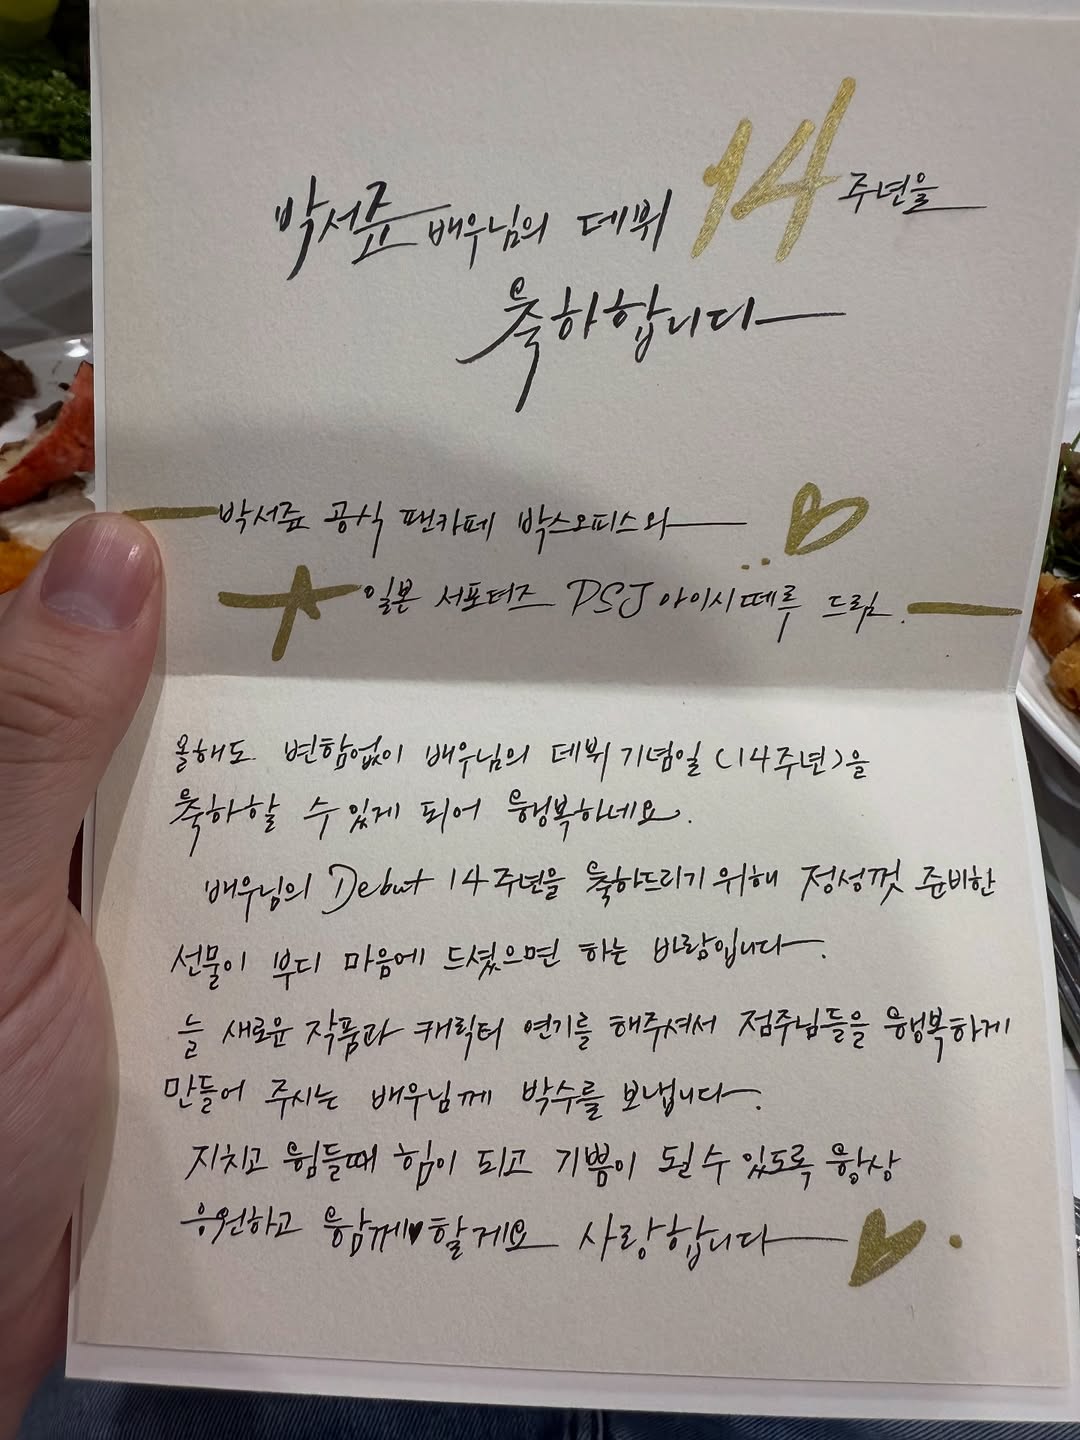 박서준 배우님의 데뷔 14주년을
축하합니다
박서준 공식 팬카페 박스오피스와
일본 서포터즈 PSJ 아이시떼루 드림.
올해도 변함없이 배우님의 데뷔 기념일(14주년)을
축하할 수 있게 되어 행복하네요.
배우님의 Debut 14주년을 축하드리기 위해 정성껏 준비한
선물이 부디 마음에 드셨으면 하는 바람입니다.
늘 새로운 작품과 캐릭터 연기를 해주셔서 점주님들을 행복하게
만들어 주시는 배우님께 박수를 보냅니다.
지치고 힘들때 힘이 되고 기쁨이 될 수 있도록 항상
응원하고 함께♥할게요 사랑합니다